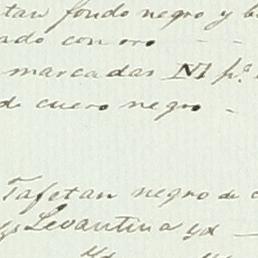 tan fondo negro y b
ado con oro
marcadas N1 p.ª
de cuero negro
Tafetan negro de
Levantina yd